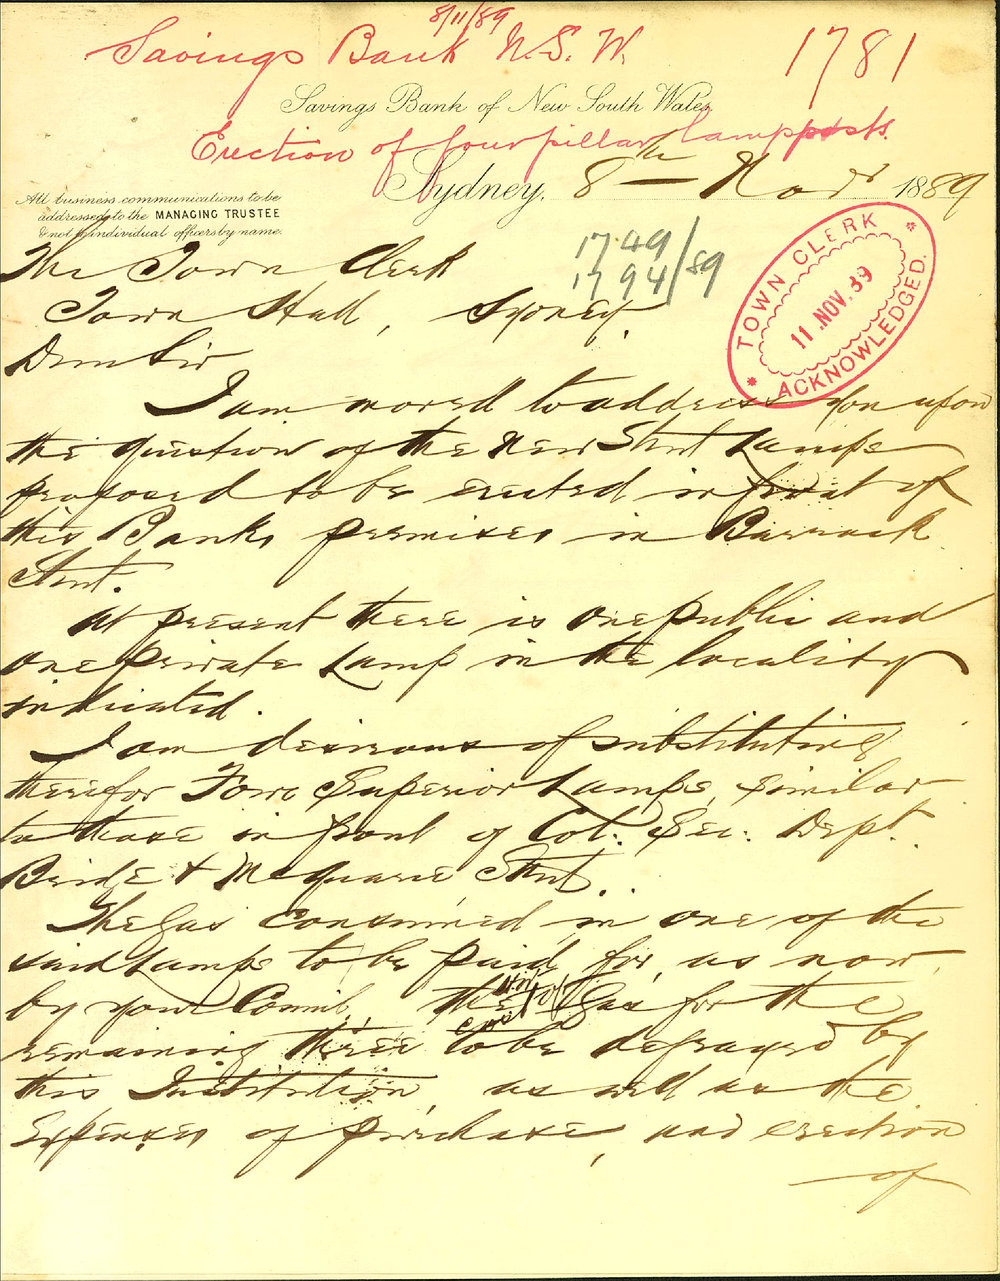 8/11/89
Savings Bank N.S.W. 1781
Savings Bank of New South Wales
Erection of four pillar lampposts.
Sydney, 8th Novr 1889
All business communications to be
addressed to the MANAGING TRUSTEE
& not to individual officers by name.
The Town Clerk
1749
1794/89
Town Hall, Sydney.
TOWN CLERK
11 .NOV. 89
ACKNOWLEDGED.
Dear Sir
I am moved to address you upon
the question of the New Street Lamps
proposed to be erected in front of
this Banks premises in Barrack
Street.
At present there is one public and
one private Lamp in the locality
indicated.
I am desirous of substituting
therefor Four Superior Lamps, similar
to those in front of Col: Sec: Dept.
Bridge & Macquarie Street.
The Gas consumed in one of the
said Lamps to be paid for, as now,
by your Council, the
cost of Gas for the
remaining three to be defrayed by
this Institution, as well as the
Expenses of purchase, and erection
of